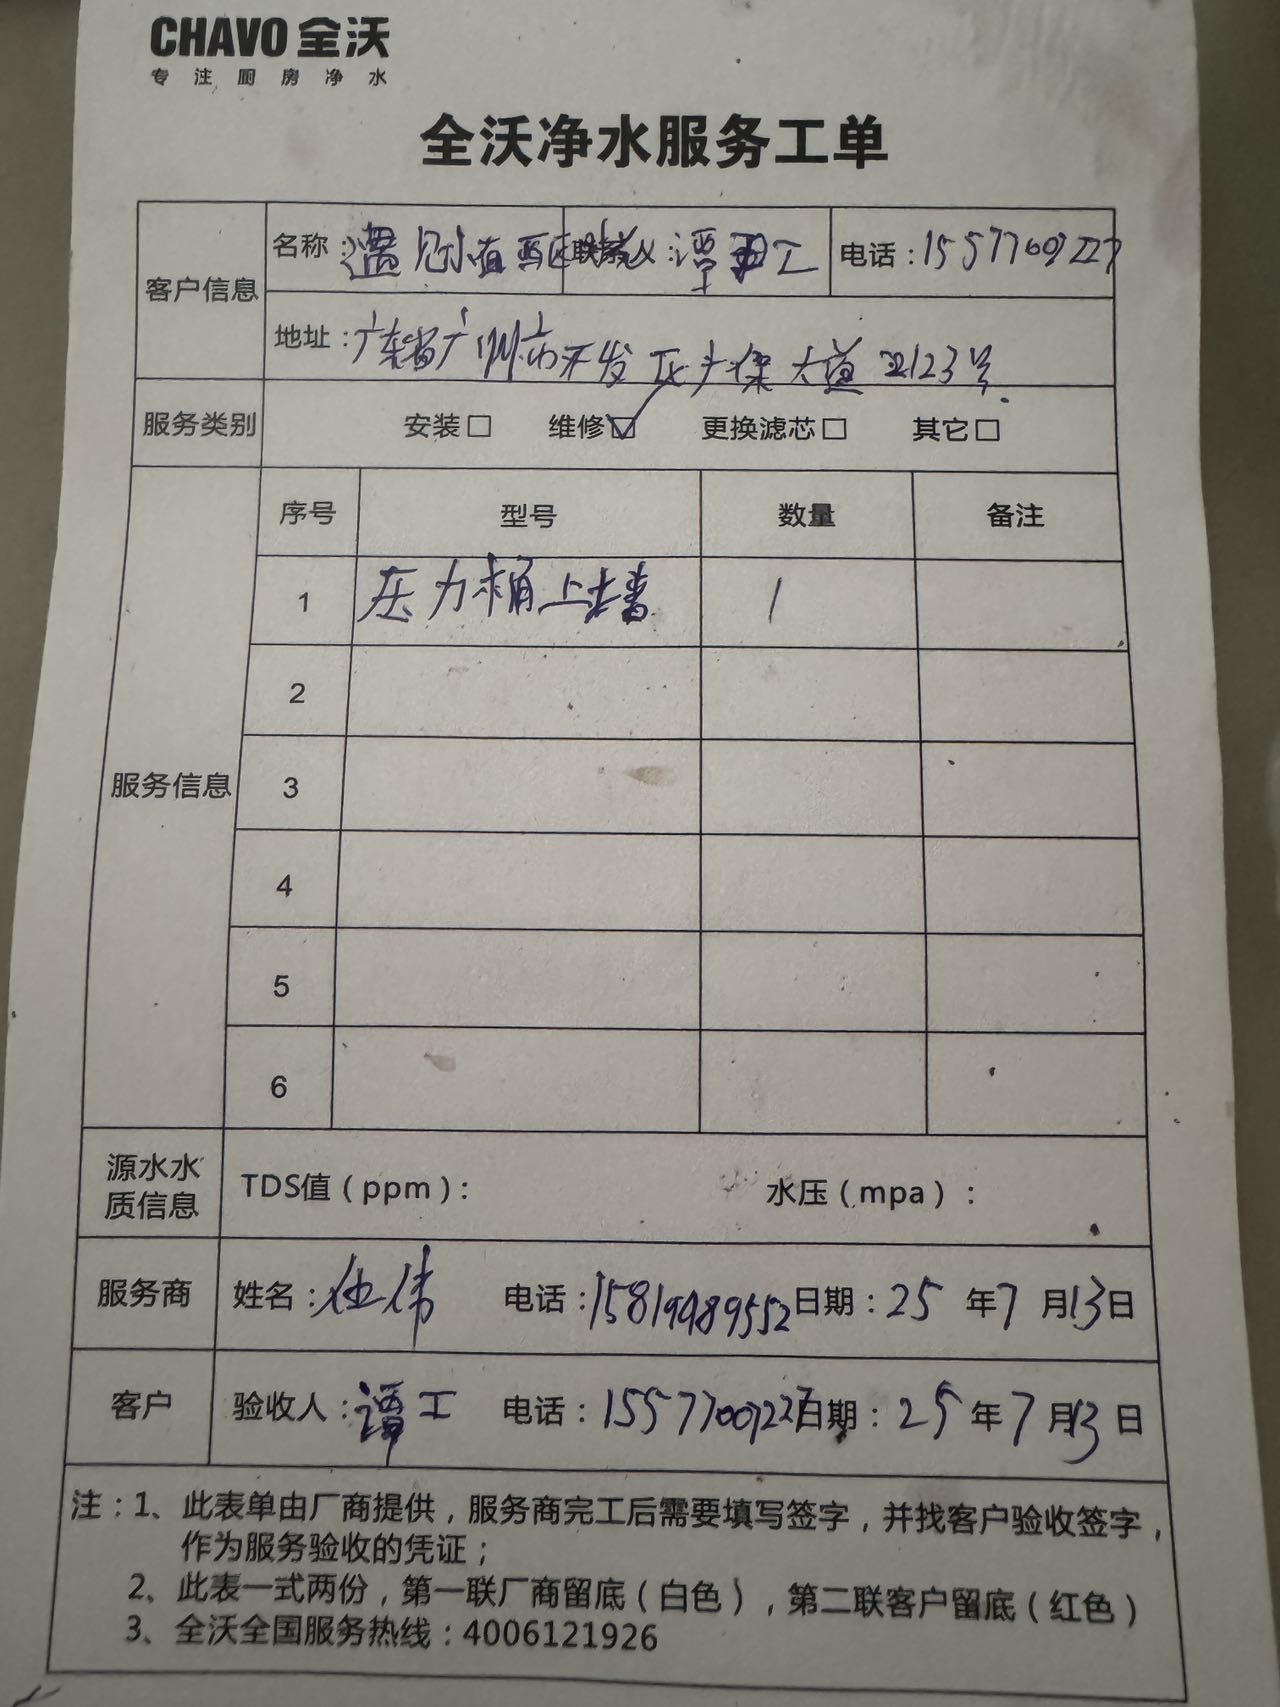 CHAVO 全沃
专注厨房净水
全沃净水服务工单
客户信息
名称：遇见小面 联系人：谭工 电话：
地址：广东省广州市开发区 大道 123号
服务类别 安装□ 维修☑ 更换滤芯□ 其它□
服务信息
序号 型号 数量 备注
1 压力桶上 1
2
3
4
5
6
源水水质信息 TDS值（ppm）： 水压（mpa）：
服务商 姓名：伍伟 电话：15819489552 日期：25年7月13日
客户 验收人：谭工 电话： 日期：25年7月13日
注：1、此表单由厂商提供，服务商完工后需要填写签字，并找客户验收签字，
作为服务验收的凭证；
2、此表一式两份，第一联厂商留底（白色），第二联客户留底（红色）
3、全沃全国服务热线：4006121926